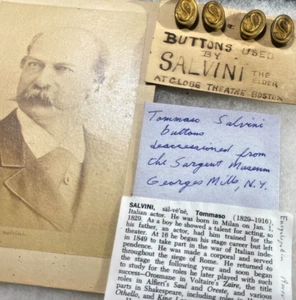 BUTTONS USED
BY
SALVINI THE
ELDER
AT GLOBE THEATRE BOSTON
Tommaso Salvini
buttons
deaccessioned from
the Sargent Museum
Georges Mills, N.Y.
SALVINI, säl-vē'nē, Tommaso (1829-1916),
Italian actor. He was born in Milan on Jan. 1,
1829. As a boy he showed a talent for acting, and
his father, an actor, had him trained for the
theatre. At 16 he began his stage career but left
in 1849 to take part in the war of Italian inde-
pendence. He made a corporal and served in
throughout the siege of Rome. He returned to
the stage the following year and soon began
to study for the roles he later played with
success—Orosmane in Voltaire's Zaïre, the title
roles in Alfieri's Saul and Oreste, and various
parts in Shakespeare, including
Othello, and King